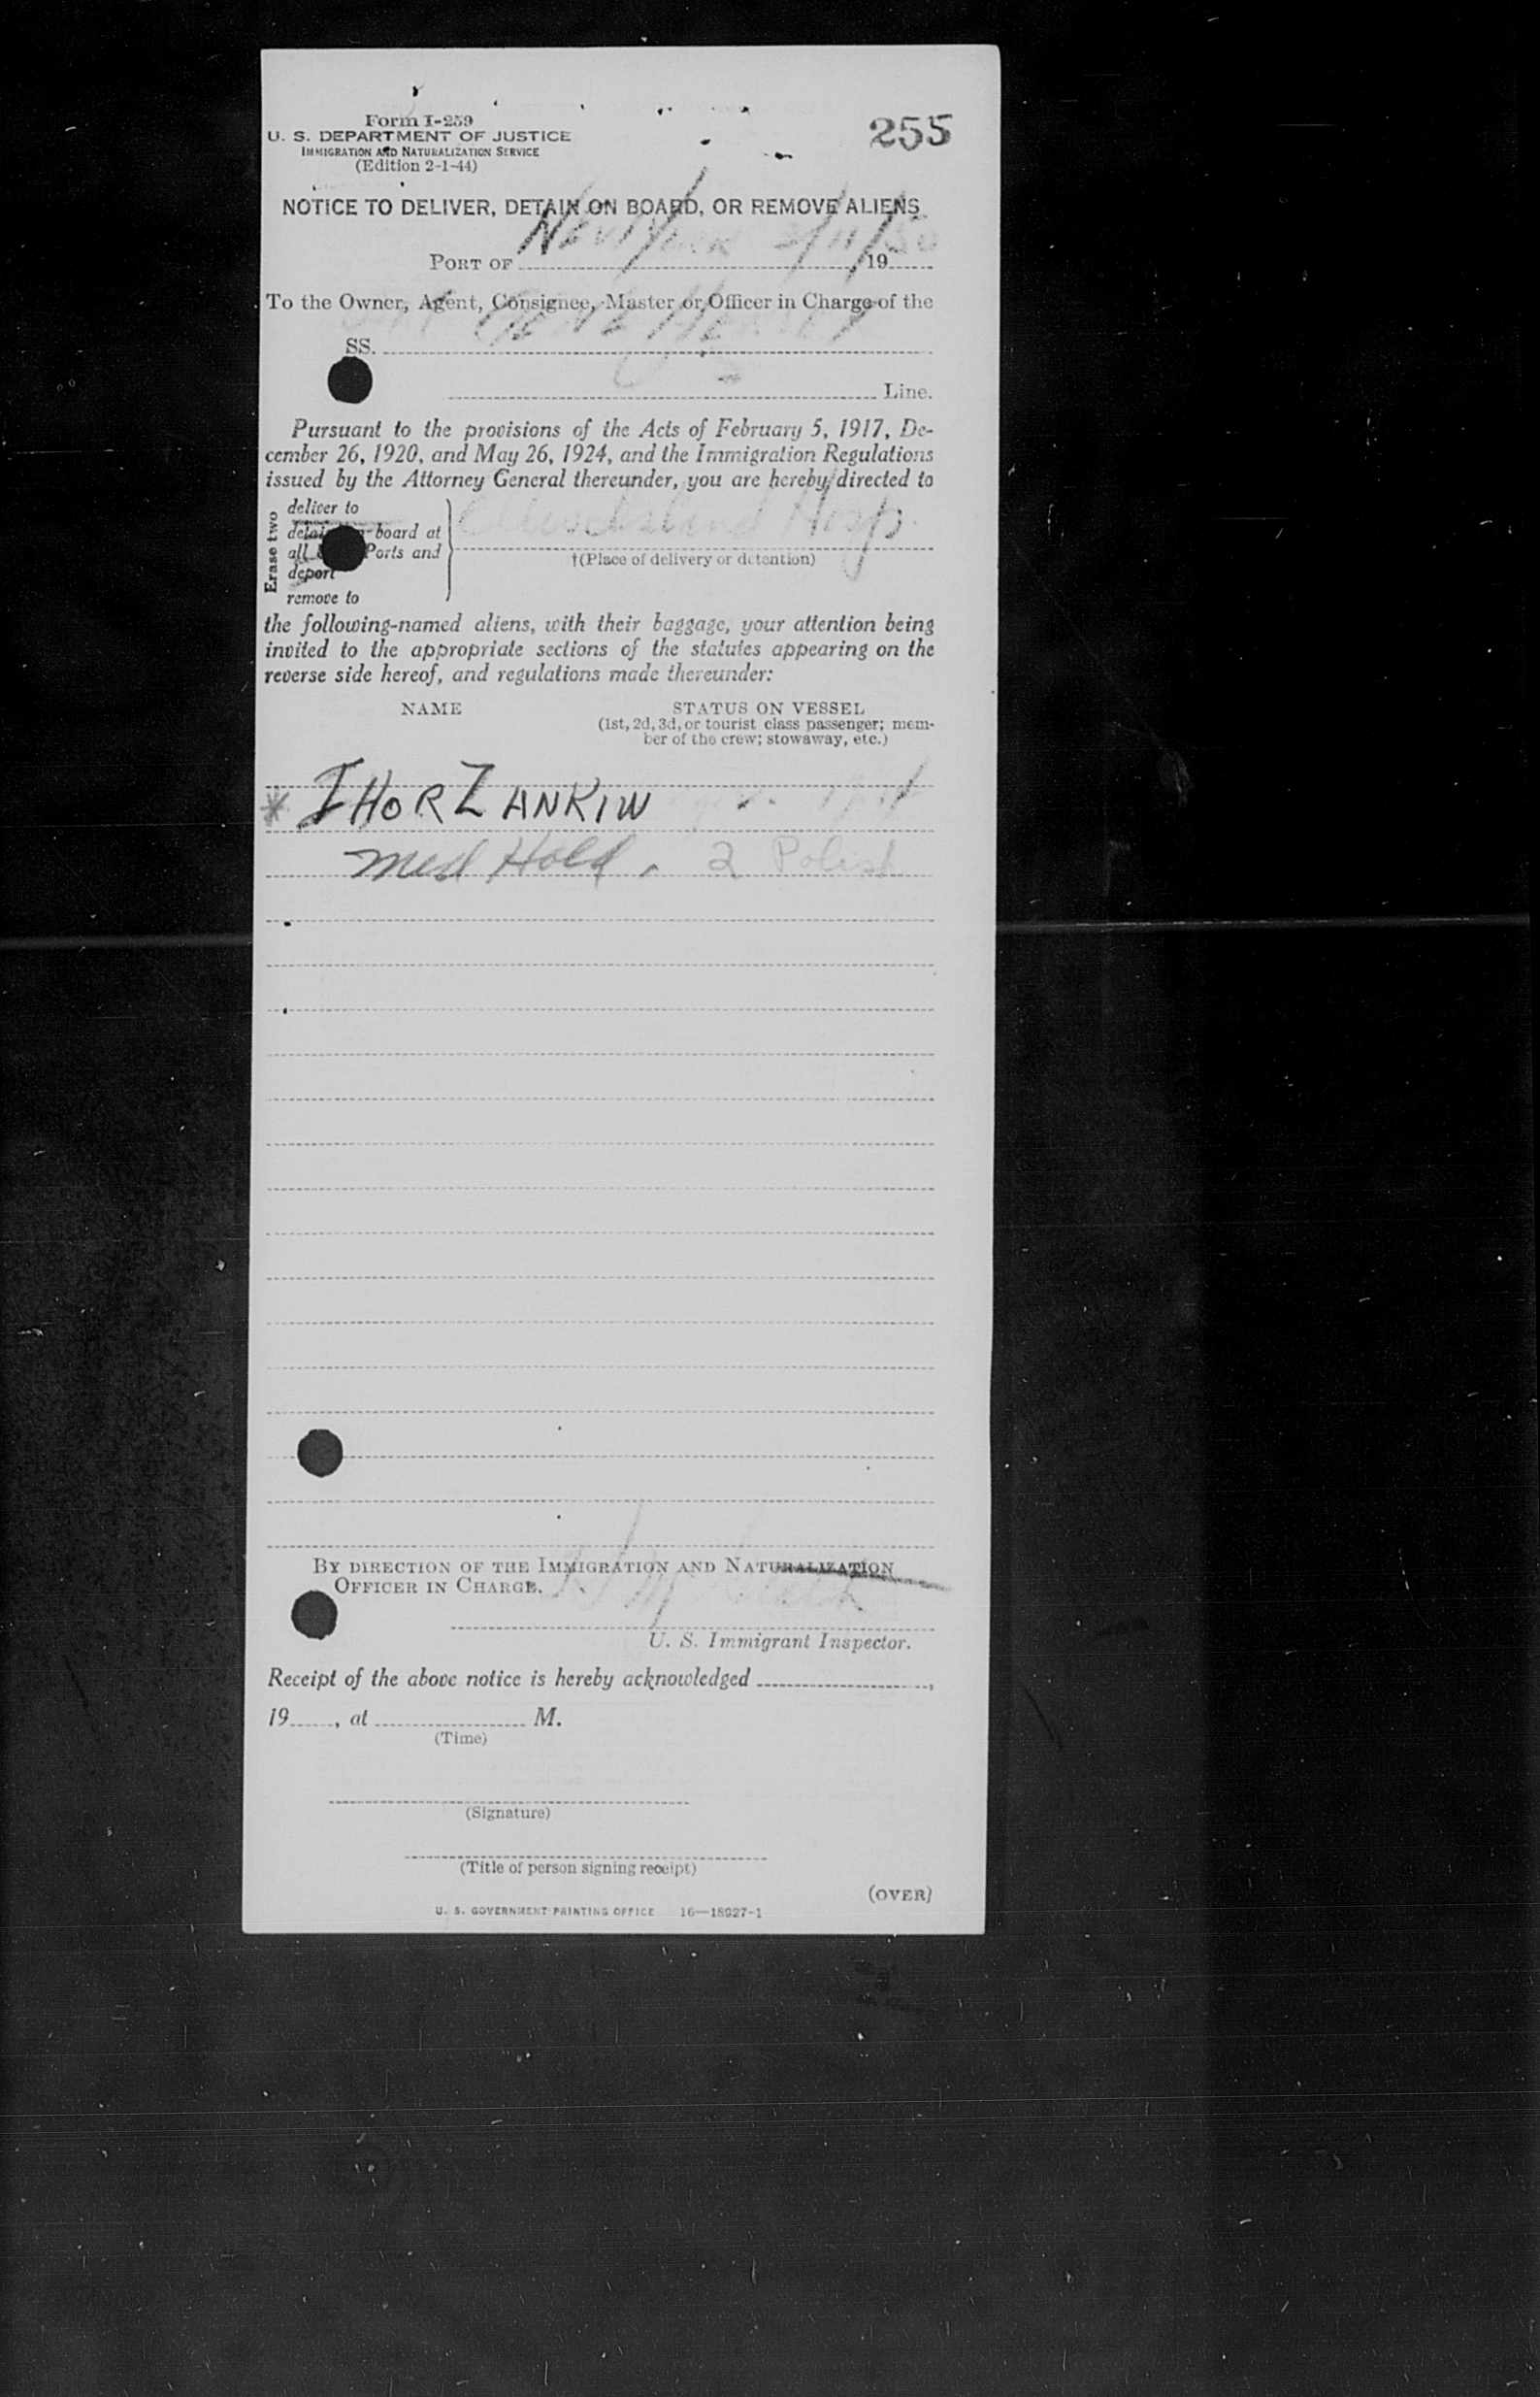 Form I-259
U. S. DEPARTMENT OF JUSTICE
IMMIGRATION AND NATURALIZATION SERVICE
(Edition 2-1-44)
255
NOTICE TO DELIVER, DETAIN ON BOARD, OR REMOVE ALIENS
PORT OF New York 19
To the Owner, Agent, Consignee, Master or Officer in Charge of the
SS.
Line.
Pursuant to the provisions of the Acts of February 5, 1917, De-
cember 26, 1920, and May 26, 1924, and the Immigration Regulations
issued by the Attorney General thereunder, you are hereby directed to
Erase two
deliver to
board at
all Ports and
deport
remove to
Hosp.
†(Place of delivery or detention)
the following-named aliens, with their baggage, your attention being
invited to the appropriate sections of the statutes appearing on the
reverse side hereof, and regulations made thereunder:
NAME STATUS ON VESSEL
(1st, 2d, 3d, or tourist class passenger; mem-
ber of the crew; stowaway, etc.)
* IHOR ZANKIW
Med Hold. 2 Polish
BY DIRECTION OF THE IMMIGRATION AND NATURALIZATION
OFFICER IN CHARGE.
U. S. Immigrant Inspector.
Receipt of the above notice is hereby acknowledged ,
19 , at M.
(Time)
(Signature)
(Title of person signing receipt)
(OVER)
U. S. GOVERNMENT PRINTING OFFICE 16—18927-1